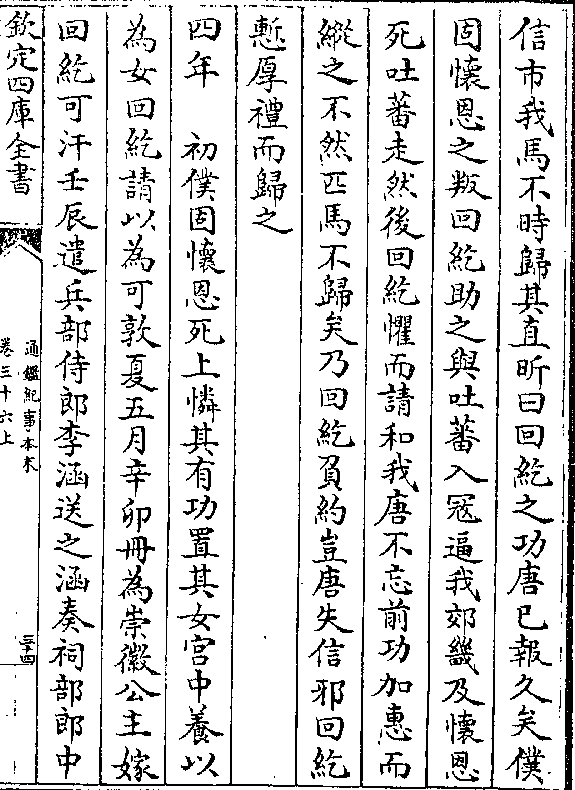 信市我馬不時歸其直昕曰回紇之功唐已報久矣僕
固懷恩之叛回紇助之與吐蕃入冦逼我郊畿及懷恩
死吐蕃走然後回紇懼而請和我唐不忘前功加惠而
縱之不然匹馬不歸矣乃回紇負約豈唐失信邪回紇
慙厚禮而歸之
四年　初僕固懷恩死上憐其有功置其女宮中養以
為女回紇請以為可敦夏五月辛卯冊為崇徽公主嫁
回紇可汗壬辰遣兵部侍郎李涵送之涵奏祠部郎中
欽定四庫全書
通鑑紀事本末
卷三十六上
三十四